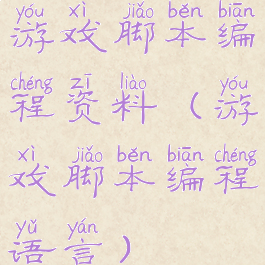 yóu xì jiǎo běn biān
游戏脚本编
chéng zī liào yóu
程资料（游
xì jiǎo běn biān chéng
戏脚本编程
yǔ yán
语言）